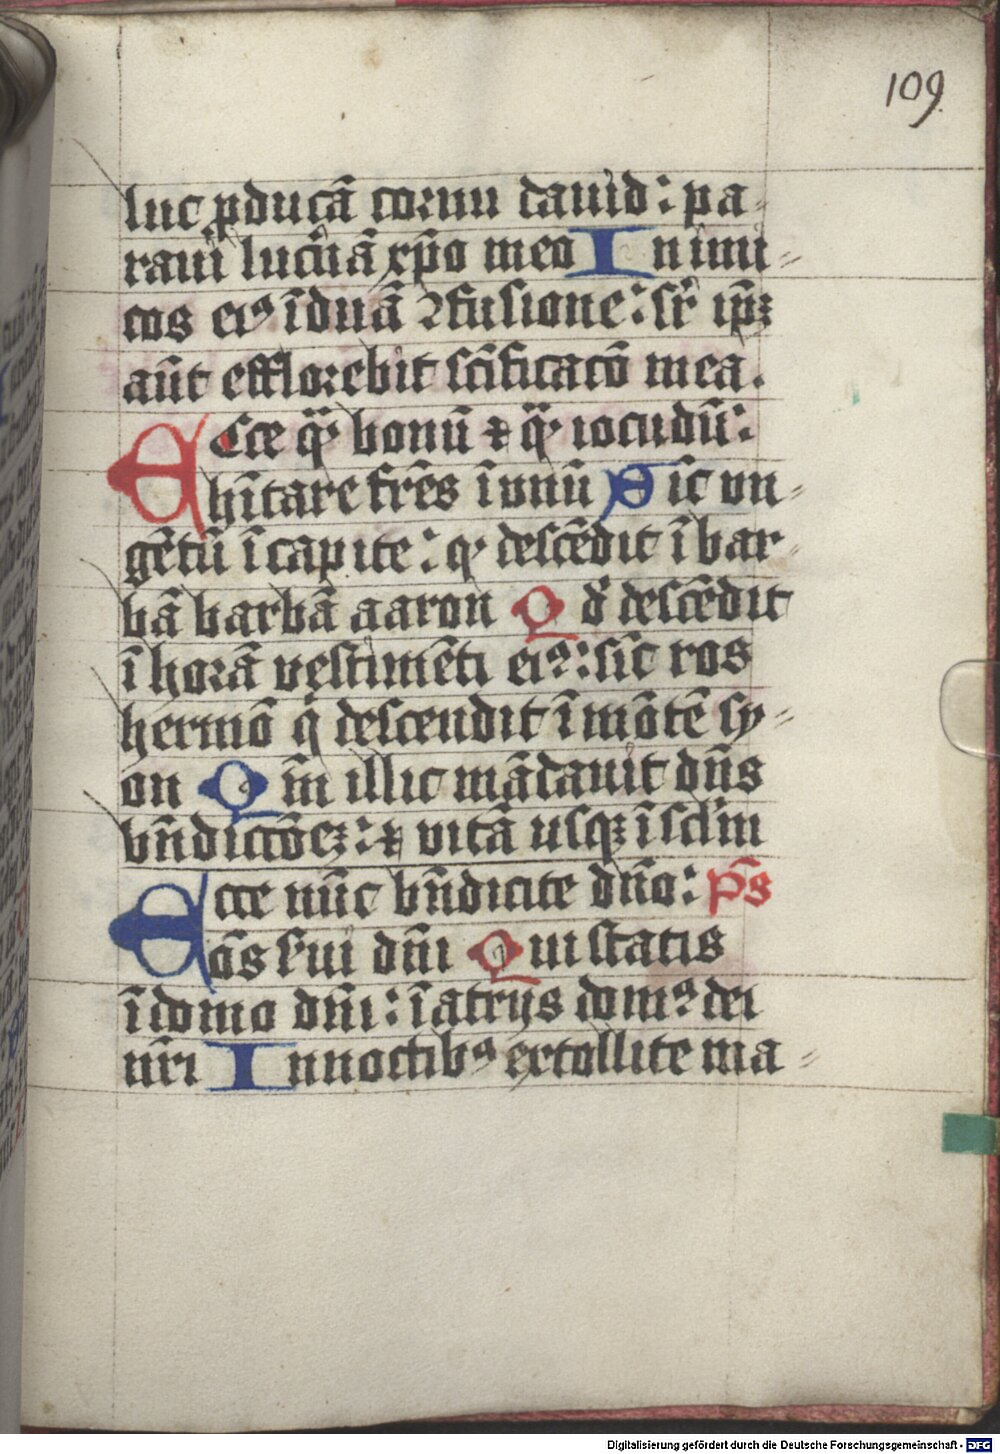 109
luc ꝓducā cornu dauid: pa-
raui lucᷓnā xp̄o meo Inimi-
cos eiꝰ īduā ꝯfusione: sr̄ ip̄ꝫ
aūt efflorebit sc̄ificacō mea.
Ecce qᷓ bonū ⁊ qᷓ iocūdū:
hītare fr̄es ī vnū Sic̄ vn-
gētū ī capite: qͥ descēdit ī bar-
bā barbā aaron Qď descēdit
ī horā vestimēti eiꝰ: sic̄ ros
hermō qͥ descendit ī mōtē sy-
on Qm̄ illic mādauit dn̄s
bn̄dictōeꝫ: ⁊ vitā usqꝫ ī sclm̄
Ecce nūc bn̄dicite dn̄o: p̄s
oēs s̄ui dn̄i Qui statis
ī domo dn̄i: ī atrijs domꝰ dei
nr̄i In noctibꝰ extollite ma-
Digitalisierung gefördert durch die Deutsche Forschungsgemeinschaft - DFG